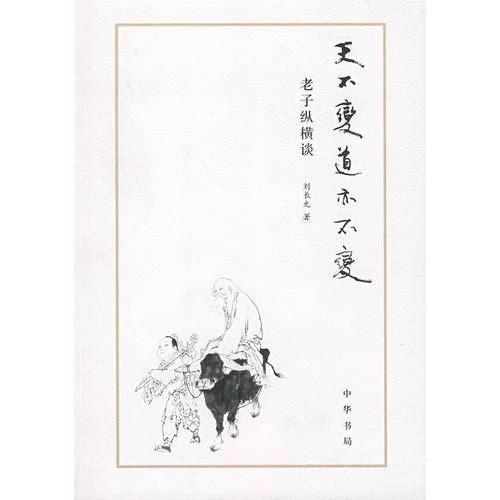 天不變道亦不變
老子纵横谈
刘长允 著
中华书局